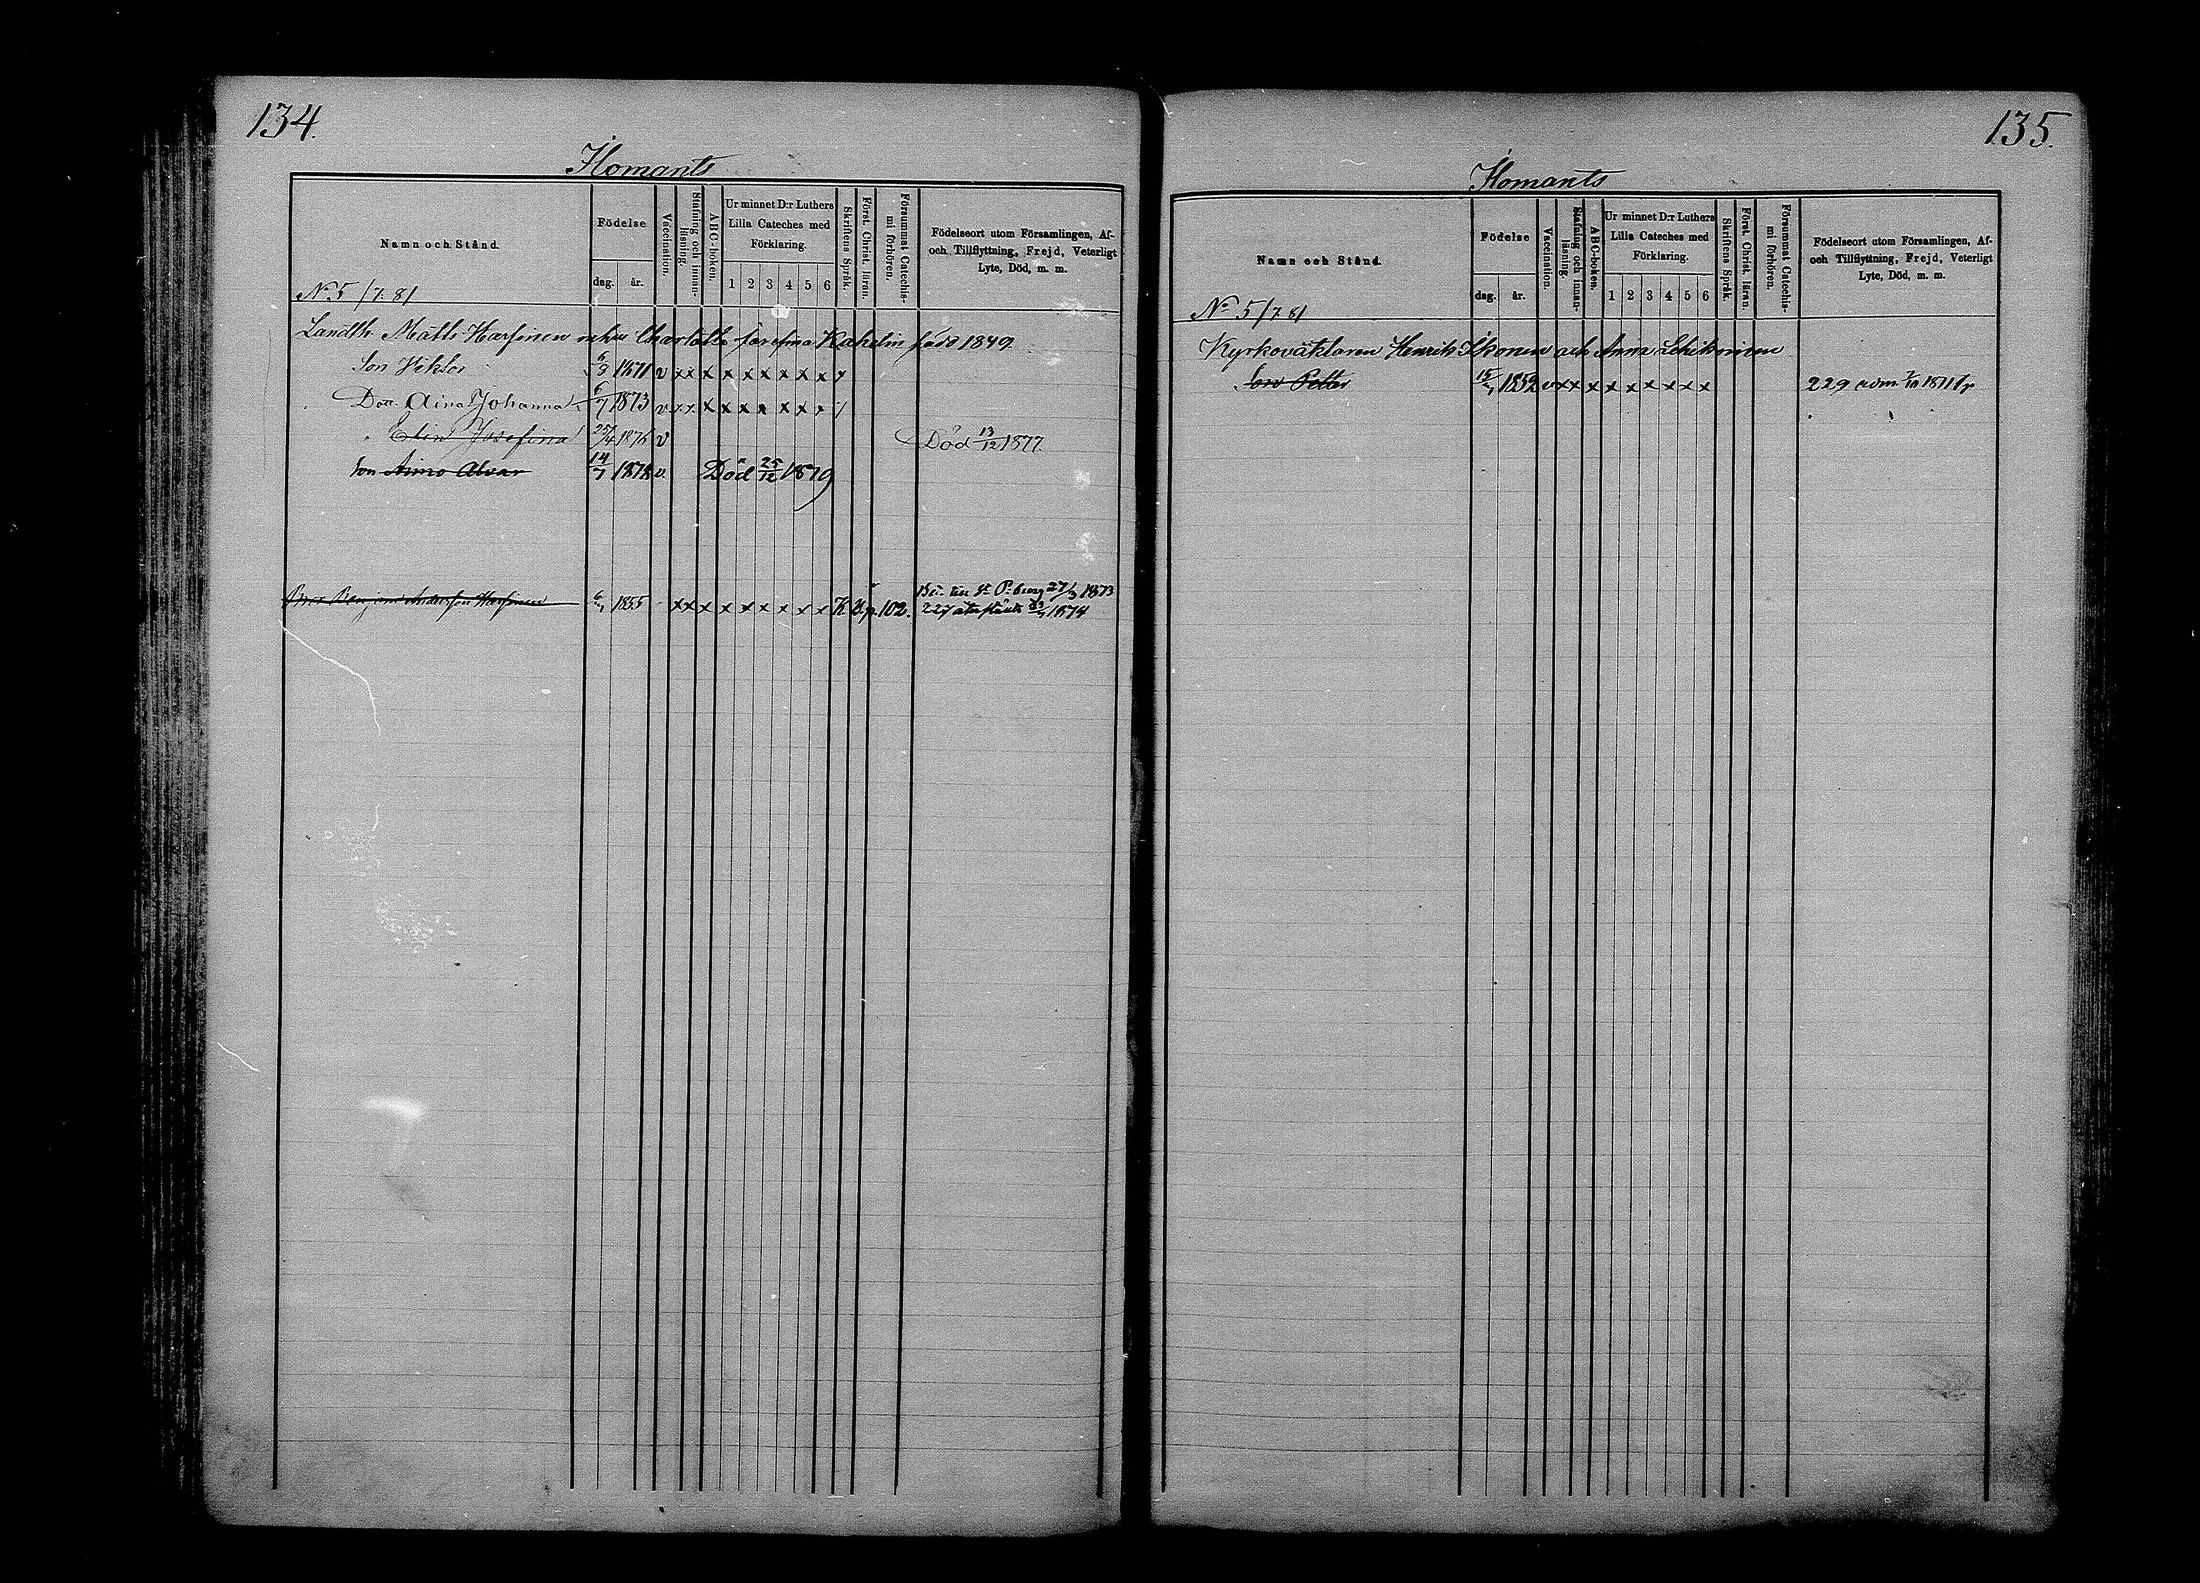 134.
Ilomants
Namn och Stånd.
Födelse
dag. år.
Vaccination.
Stafning och innan-läsning.
ABC-boken.
Ur minnet D:r Luthers
Lilla Cateches med
Förklaring.
1 2 3 4 5 6
Skriftens Språk.
Först. Christ. läran.
Försummat Catechis-mi förhören.
Födelseort utom Församlingen, Af-
och Tillflyttning, Frejd, Veterligt
Lyte, Död, m. m.
N 5/7. 81
Landtb. Matts Harsinen Charlotta Josefina Kahelin född 1849.
Son Viktor 6/9 1871 v x x x x x x x x x
Dott. Aina Johanna 6/7 1873 v x x x x x x x x x
" Elin Josefina 25/4 1876 v Död 13/12 1877.
Son Aimo Alvar 14/7 1878 v. Död 25/12 1879
Benjam Andersson Harsinen 6/4 1855 x x x x x x x x x 102. till St P:burg 27/3 1873
227 1874
135.
Ilomants
Namn och Stånd.
Födelse
dag. år.
Vaccination.
Stafning och innan-läsning.
ABC-boken.
Ur minnet D:r Luthers
Lilla Cateches med
Förklaring.
1 2 3 4 5 6
Skriftens Språk.
Först. Christ. läran.
Försummat Catechis-mi förhören.
Födelseort utom Församlingen, Af-
och Tillflyttning, Frejd, Veterligt
Lyte, Död, m. m.
No 5/7 81
Kyrkoväktaren Henrik Ikonen och Anna Lehikoinen
Son Petter 15/4 1852 v x x x x x x x x x 229 adm. 7/10 1871